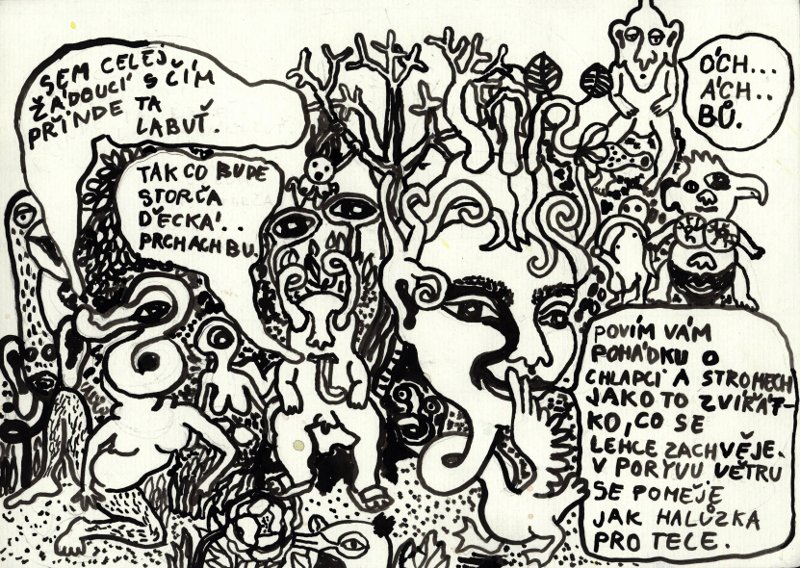 SEM CELEJ
ŽÁDOUCÍ S ČÍM
PŘÍNDE TA
LABUŤ.
TAK CO BUDE
STORČA
DĚCKÁ'..
PRCHACH BU.
ÓCH...
ÁCH..
BŮ.
POVÍM VÁM
POHÁDKU O
CHLAPCI A STROMECH
JAKO TO ZVÍŘÁT-
KO, CO SE
LEHCE ZACHVĚJE.
V PORYVU VĚTRU
SE POMĚJE
JAK HALŮZKA
PRO TELE.